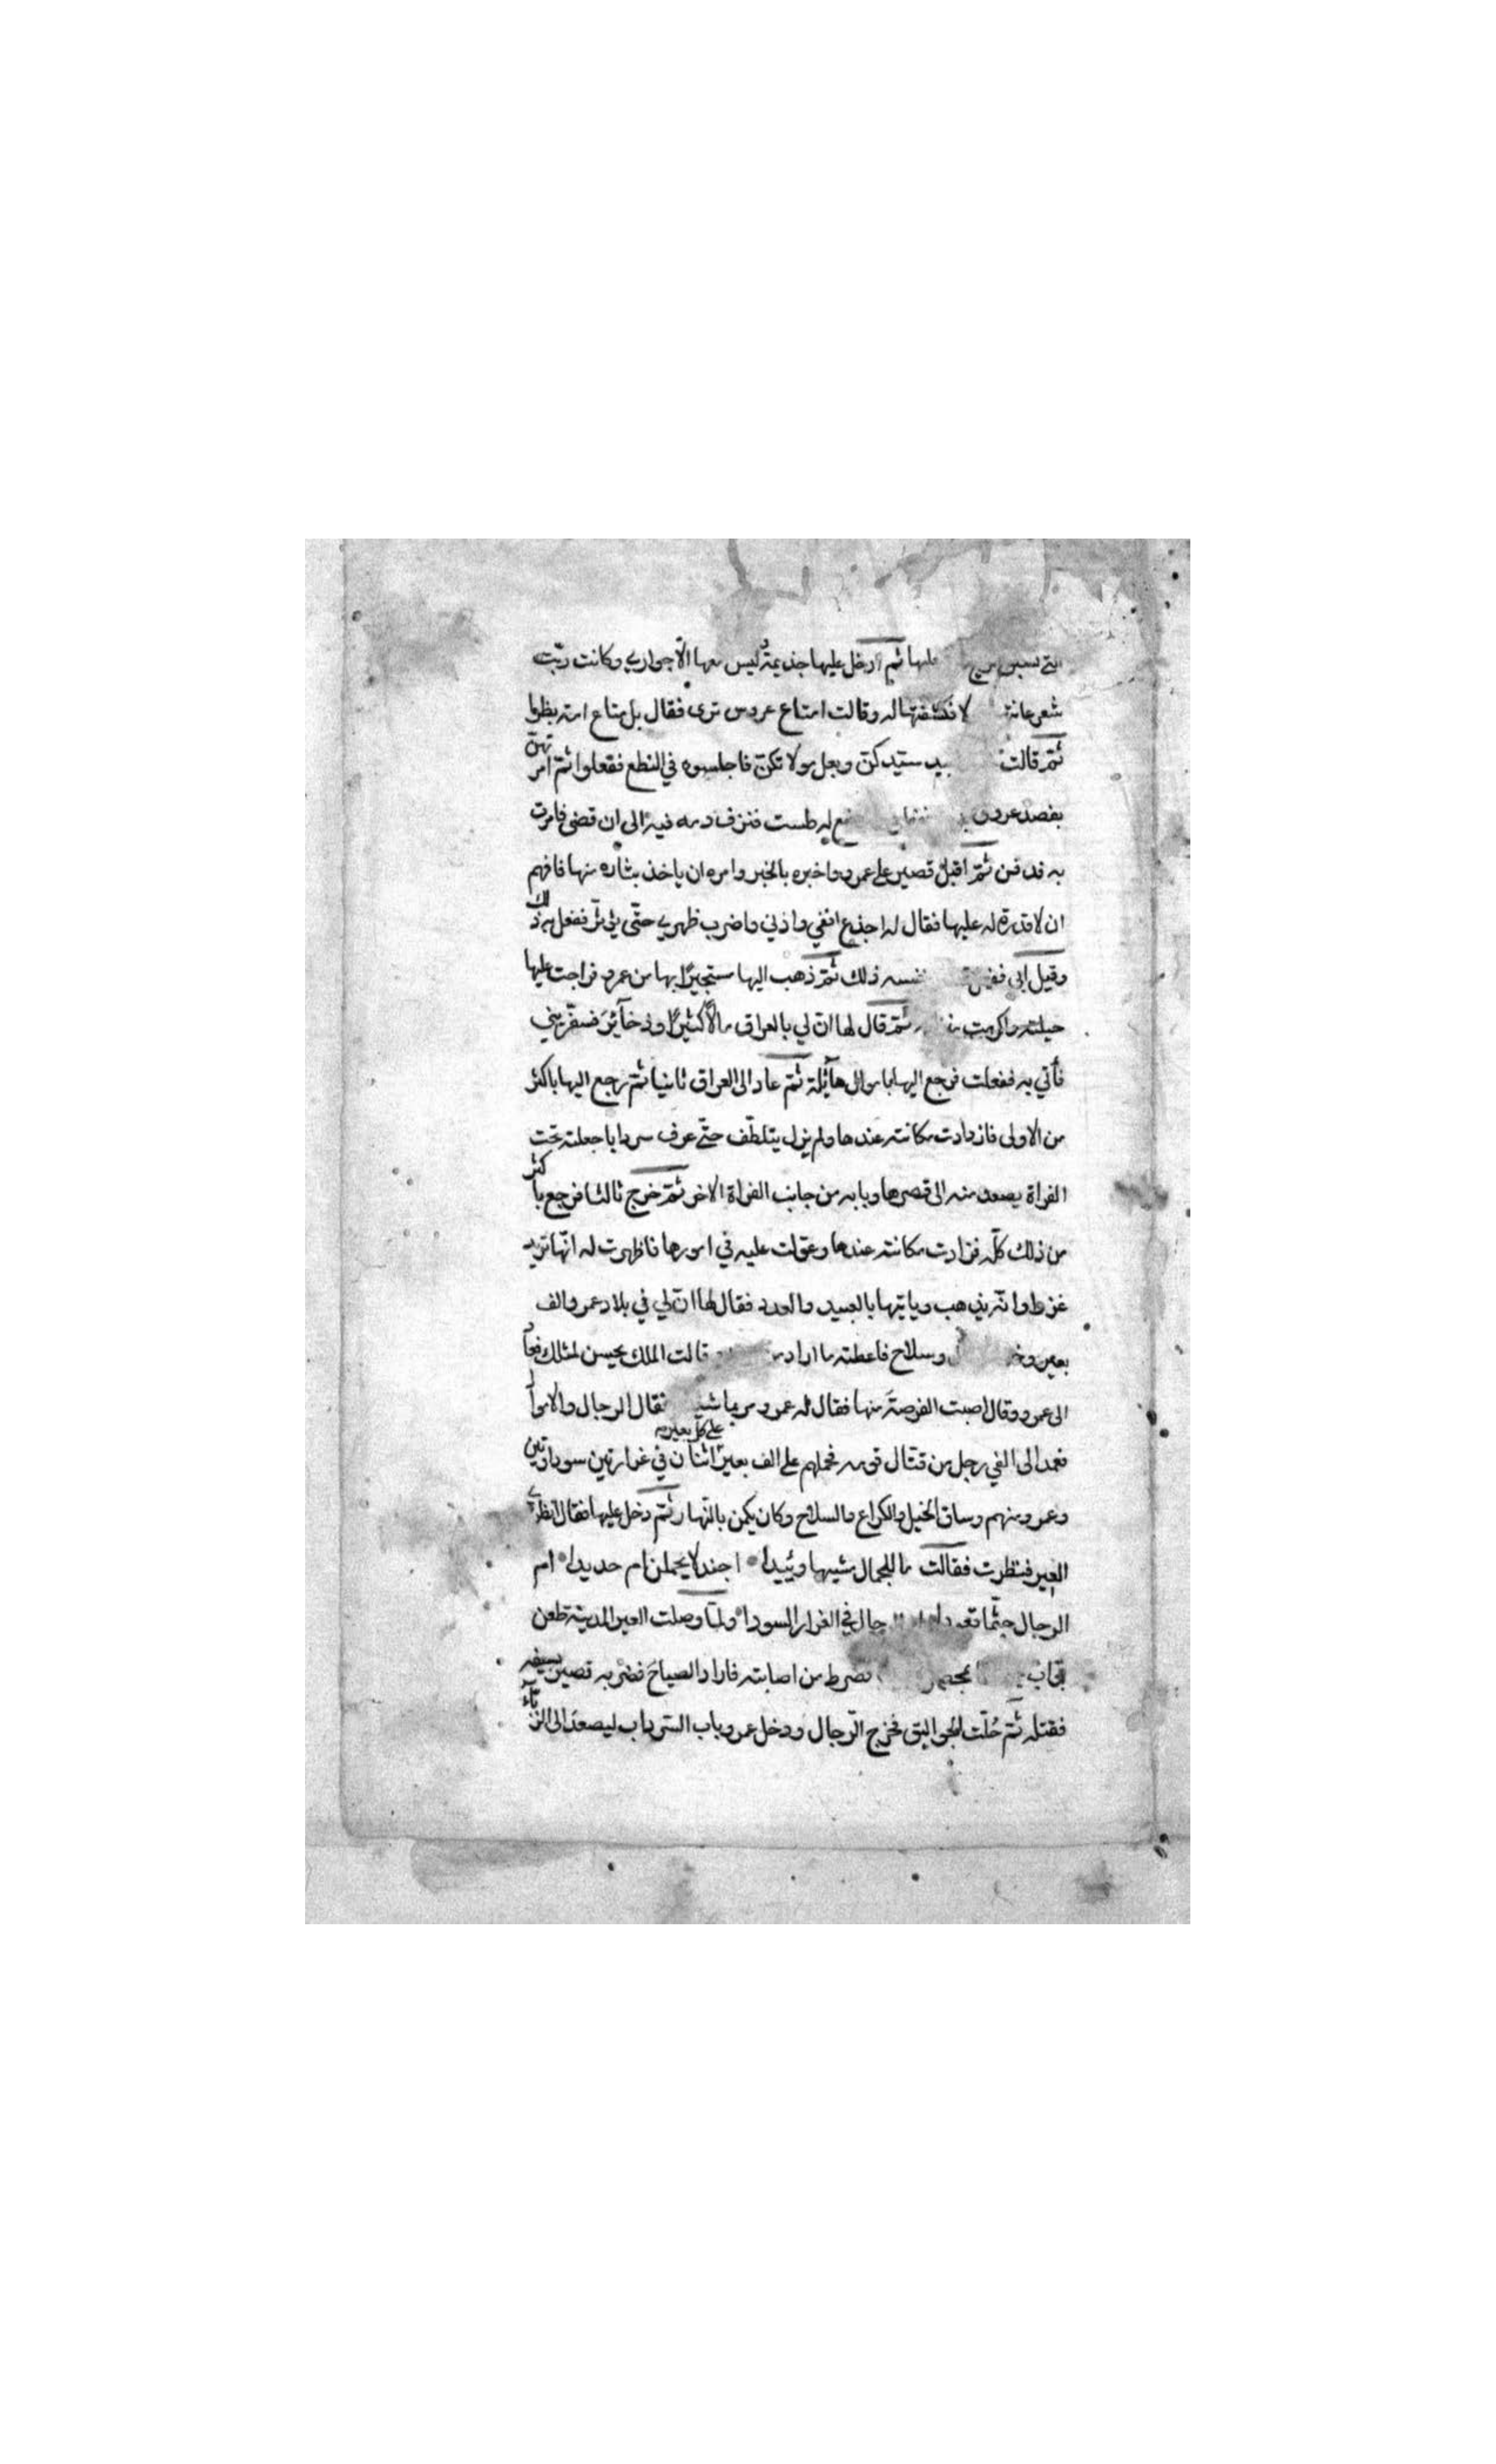 عليها ثم ادخل عليها جذيمة وليس معها الّا جواري وكانت ربّت
شعر عانة لا فكشفتها له وقالت امتاع عروس ترى فقال بل متاع امة بظرا
ثمّ قالت بيد سيّدكنّ وبعل مولاتكنّ فاجلسوه في النطع ففعلوا ثمّ امرتهنّ
بفصد عروق له طست فنزف دمه فيه الى ان قضى فامرت
به فدفن ثمّ اقبل قصير على عمرو واخبره بالخبر وامره ان ياخذ بثاره منها فافهم
ان لا قدرة له عليها فقال له اجذع انفي واذني واضرب ظهري حتّى يؤثّر ففعل به ذلك
وقيل ابى بنفسه ذلك ثمّ ذهب اليها مستجيرًا بها من عمرو فراجت عليها
حيلته واكرمت ثمّ قال لها انّ لي بالعراق مالًا كثيرًا وذخآئر فسفّريني
فأتي به ففعلت فرجع اليها باموال هآئلة ثمّ عاد الى العراق ثانيا ثمّ رجع اليها باكثر
من الاولى فازدادت مكانته عندها ولم يزل يتلطّف حتّى عرف سردابا جعلته تحت
الفراة يصعد منه الى قصرها وبابه من جانب الفراة الاخر ثمّ خرج ثالثا فرجع باكثر
من ذلك كلّه فزادت مكانته عندها وعوّلت عليه في امورها فاظهرت له انّها تريد
غزوا وانّه يذهب وياتيها بالعبيد والعدد فقال لها انّ لي في بلاد عمرو الف
بعير وسلاح فاعطته ما اراد قالت الملك يحسن لمثلك فجآء
الى عمرو وقال اصبت الفرصة منها فقال له عمرو مر بما شئت فقال الرجال والاموال
فعمد الى الفي رجل من قتال قومه فحملهم على الف بعير على كل بعير اثنان في غرارتين سوداوتين
وعمرو منهم وساق الخيل والكراع والسلاح وكان يكمن بالنّهار ثمّ دخل عليها فقال انظري
العير فنظرت فقالت ما للجمال مشيها وئيدا اجندلا يحملن ام حديدا ام
الرجال جثّما قعودا الرجال في الغرار السودا ولمّا وصلت العير المدينة طعن
فضرط من اصابته فاراد الصياح فضربه قصير بسيفه
فقتله ثمّ حُلّت الجواليق فخرج الرّجال ودخل عمرو باب السّرداب ليصعد الى الزبّآء